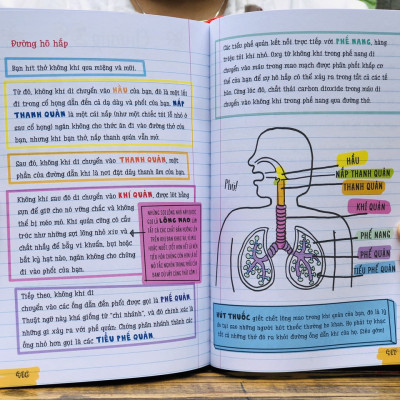 Đường hô hấp
Bạn hít thở không khí qua miệng và mũi.
Từ đó, không khí di chuyển vào HẦU của bạn, đó là một lối
đi trong cổ họng dẫn đến cả dạ dày và phổi của bạn. NẮP
THANH QUẢN là một cái nắp (như một chiếc túi lễ nhỏ ở
sau cổ họng) ngăn không cho thức ăn đi vào đường thở của
bạn, nhưng khi bạn thở, nắp thanh quản vẫn mở.
Sau đó, không khí di chuyển vào THANH QUẢN, một
phần của đường dẫn khí là nơi đặt dây thanh âm của bạn.
Không khí sau đó di chuyển vào KHÍ QUẢN, được lót bằng
sụn để giữ cho nó vững chắc và không
thể bị méo mó. Khí quản cũng có cấu
trúc như những sợi lông nhỏ xíu và
chất nhầy để bẫy vi khuẩn, bụi hoặc
bất kỳ hạt nào, ngăn không cho chúng
đi vào phổi của bạn.
NHỮNG SỢI LÔNG NHỎ NÀY ĐƯỢC
GỌI LÀ LÔNG MAO
Tiếp theo, không khí di
chuyển vào các ống dẫn đến phổi được gọi là PHẾ QUẢN.
Thuật ngữ này khá giống từ "chi nhánh", và đó chính xác là
những gì xảy ra với phế quản. Chúng phân nhánh thành các
ống nhỏ hơn được gọi là các TIỂU PHẾ QUẢN.
Các tiểu phế quản kết nối trực tiếp với PHẾ NANG, hàng
triệu túi khí nhỏ. Oxy từ không khí trong phế nang di
chuyển vào máu trong mao mạch được phân phối khắp cơ
thể của bạn để sự hô hấp có thể xảy ra trong tất cả các tế
bào. Cùng lúc đó, chất thải carbon dioxide trong máu di
chuyển vào không khí trong phế nang qua đường thở.
HẦU
NẮP THANH QUẢN
THANH QUẢN
Phổi
KHÍ QUẢN
PHẾ NANG
PHẾ QUẢN
TIỂU PHẾ QUẢN
HÚT THUỐC giết chết lông mao trong khí quản của bạn, đó là lý
do tại sao những người hút thuốc thường ho khan. Họ phải tự khạc
tất cả những thứ đó ra khỏi đường dẫn khí của họ. Eo